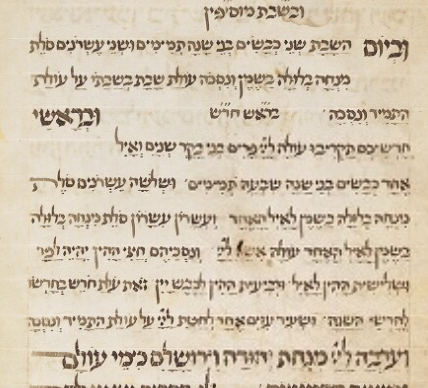 ובשבת מוסיפין
וביום השבת שני כבשים בני שנה תמימים ושני עשרונים סולת
מנחה בלולה בשמן ונסכה עולת שבת בשבתו על עולת
התמיד ונסכה בראש חדש ובראשי
חדשיכם תקריבו עולה ליי פרים בני בקר שנים ואיל
אחד כבשים בני שנה שבעה תמימים ושלשה עשרונים סולת
מנחה בלולה בשמן לאיל האחד ועשרון עשרון סלת מנחה בלולה
בשמן לאיל האחד עולה ליי ונסכיהם חצי ההין יהיה לפר
ושלישית ההין לאיל ורביעית ההין לכבש יין זאת עלת חדש בחדשו
לחדשי השנה ושעיר עזים אחד לחטאת ליי על עולת התמיד ונסכה
וערבה ליי מנחת יהודה וירושלם כימי עולם